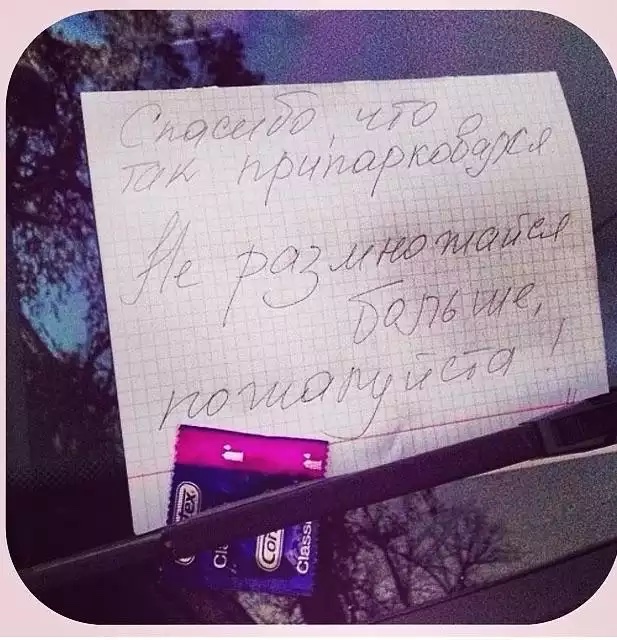 Спасибо, что
так припарковался
Не размножайся
больше,
пожалуйста!
Contex
Classic
Contex
Classic